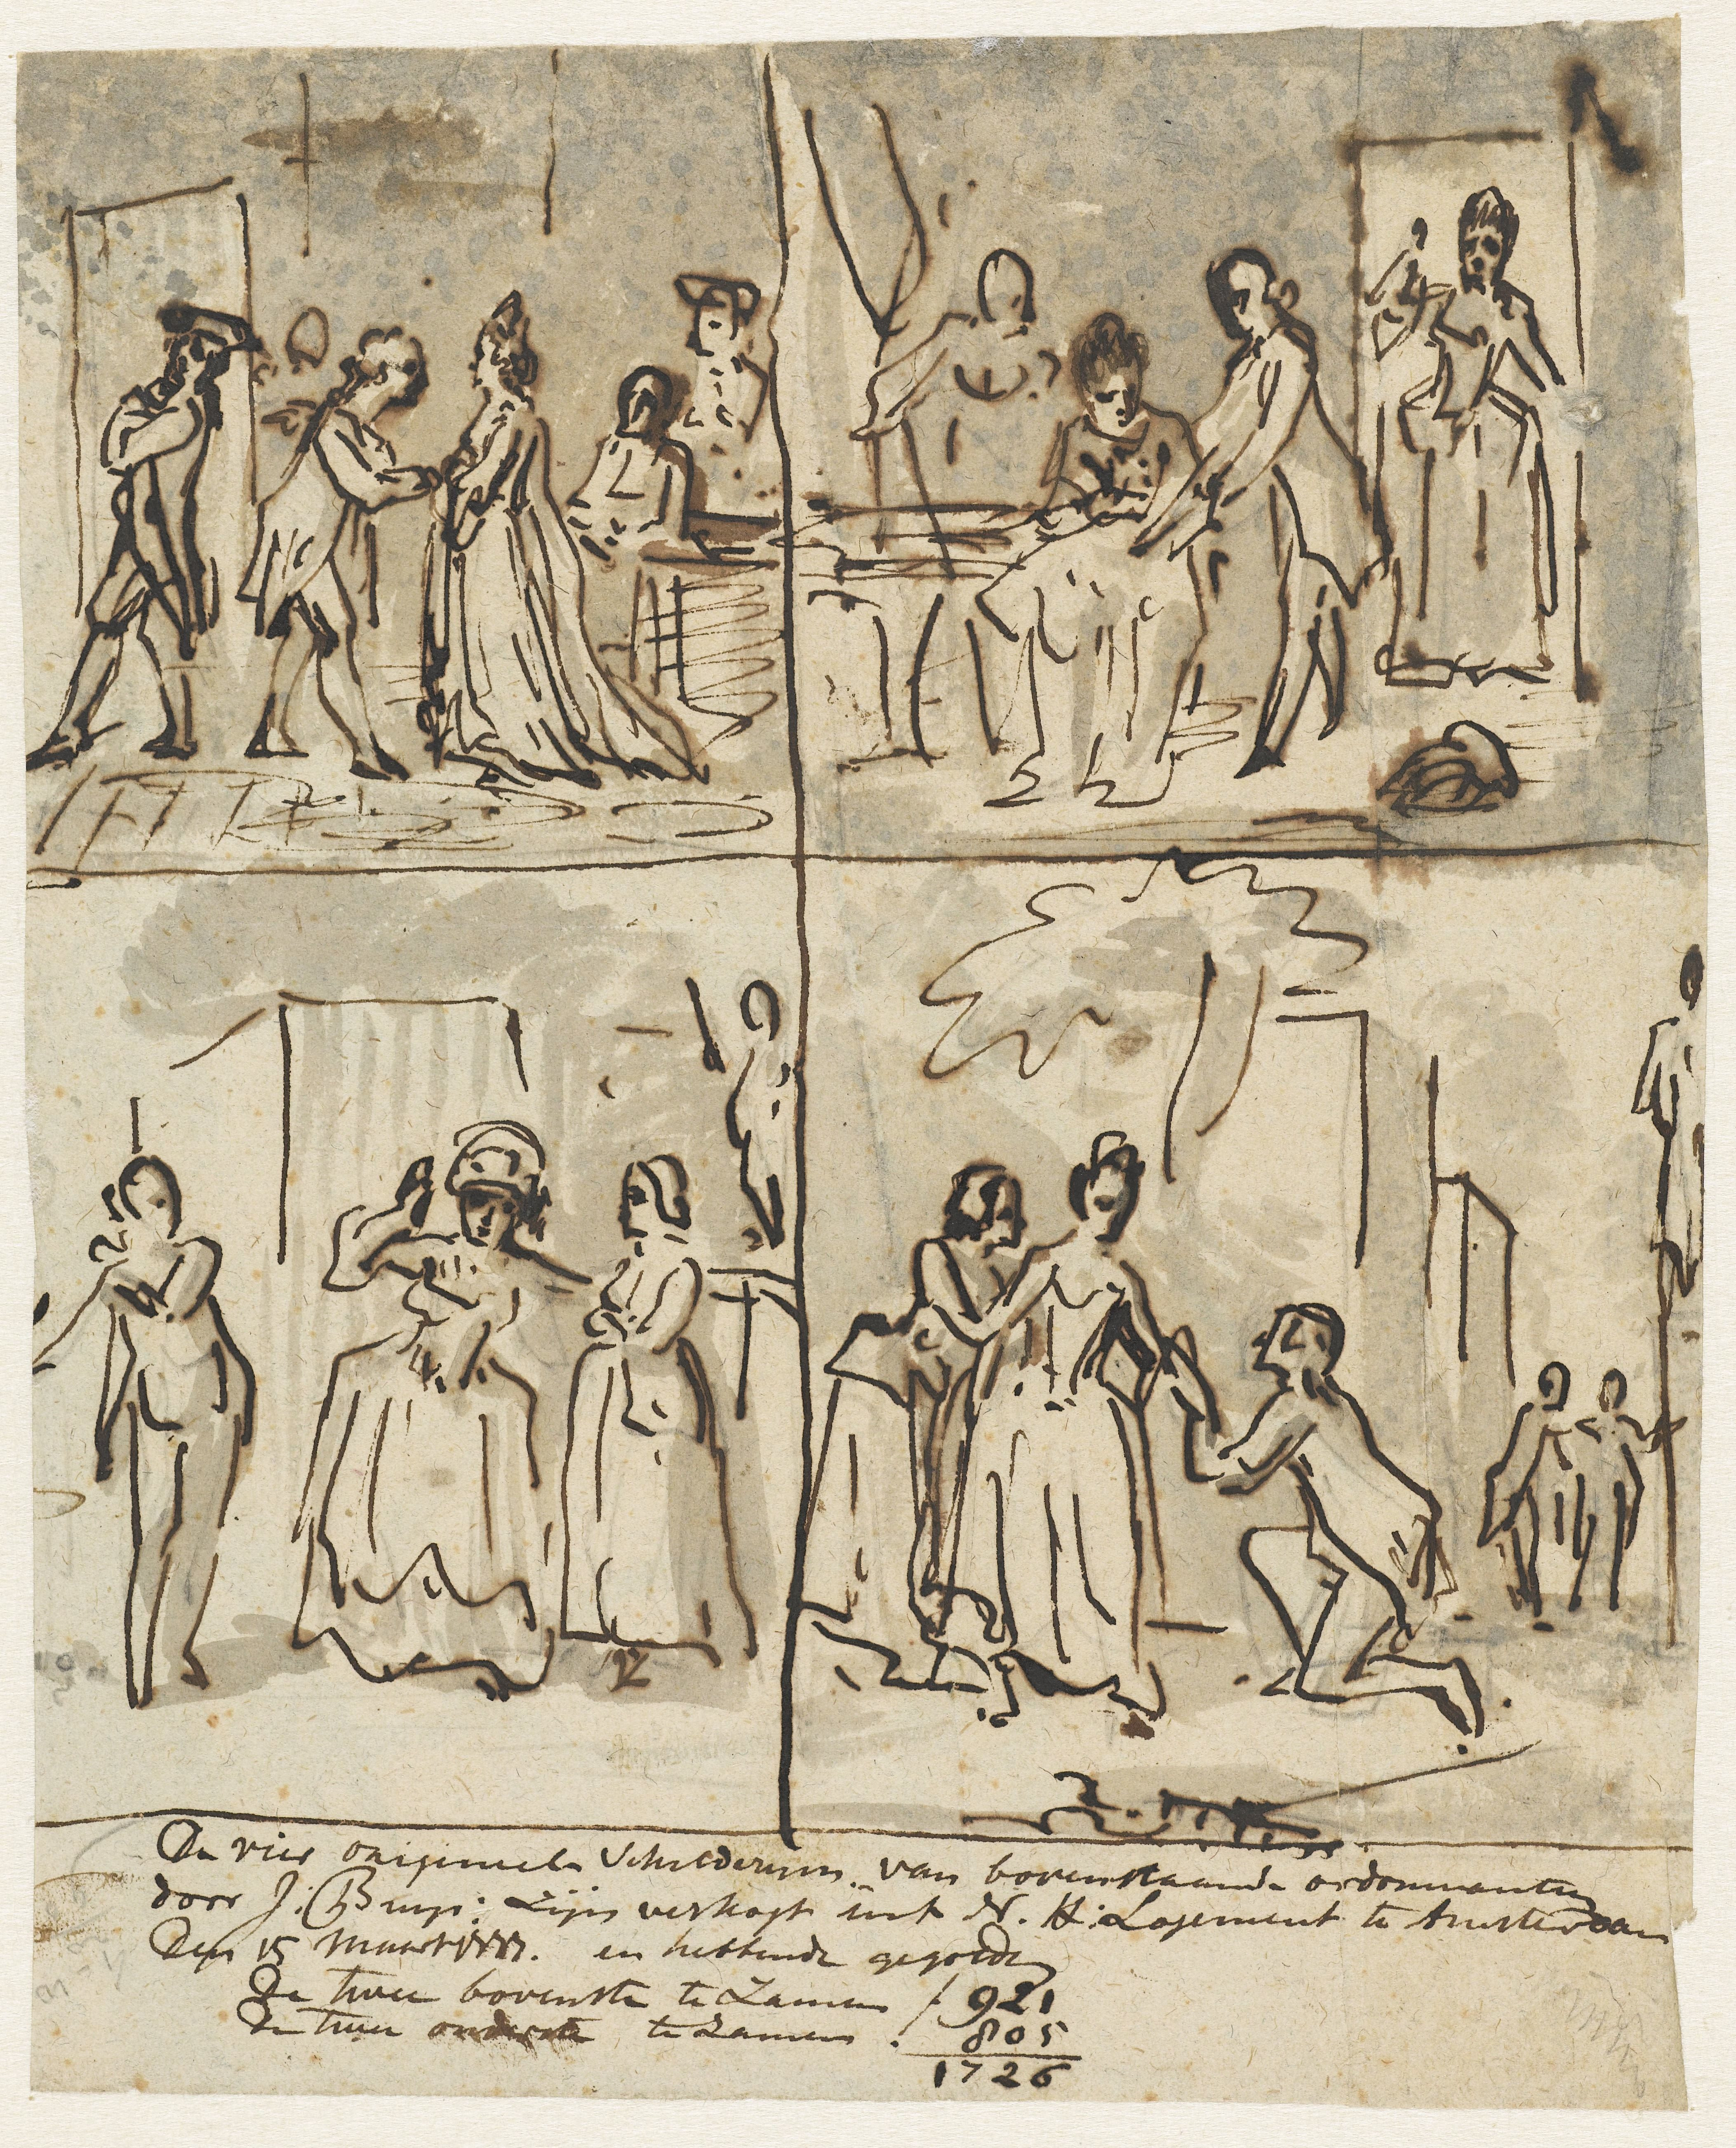 De vier origineele Schilderyen van bovenstaande ordonnantien
door J: Buys: Zijn verkogt in't N. H: Logement te Amsterdam
Den 15 Maart en hebbende gegolden
De twee bovenste te Zamen f 921
De twee onderste te Zamen . 805
1726